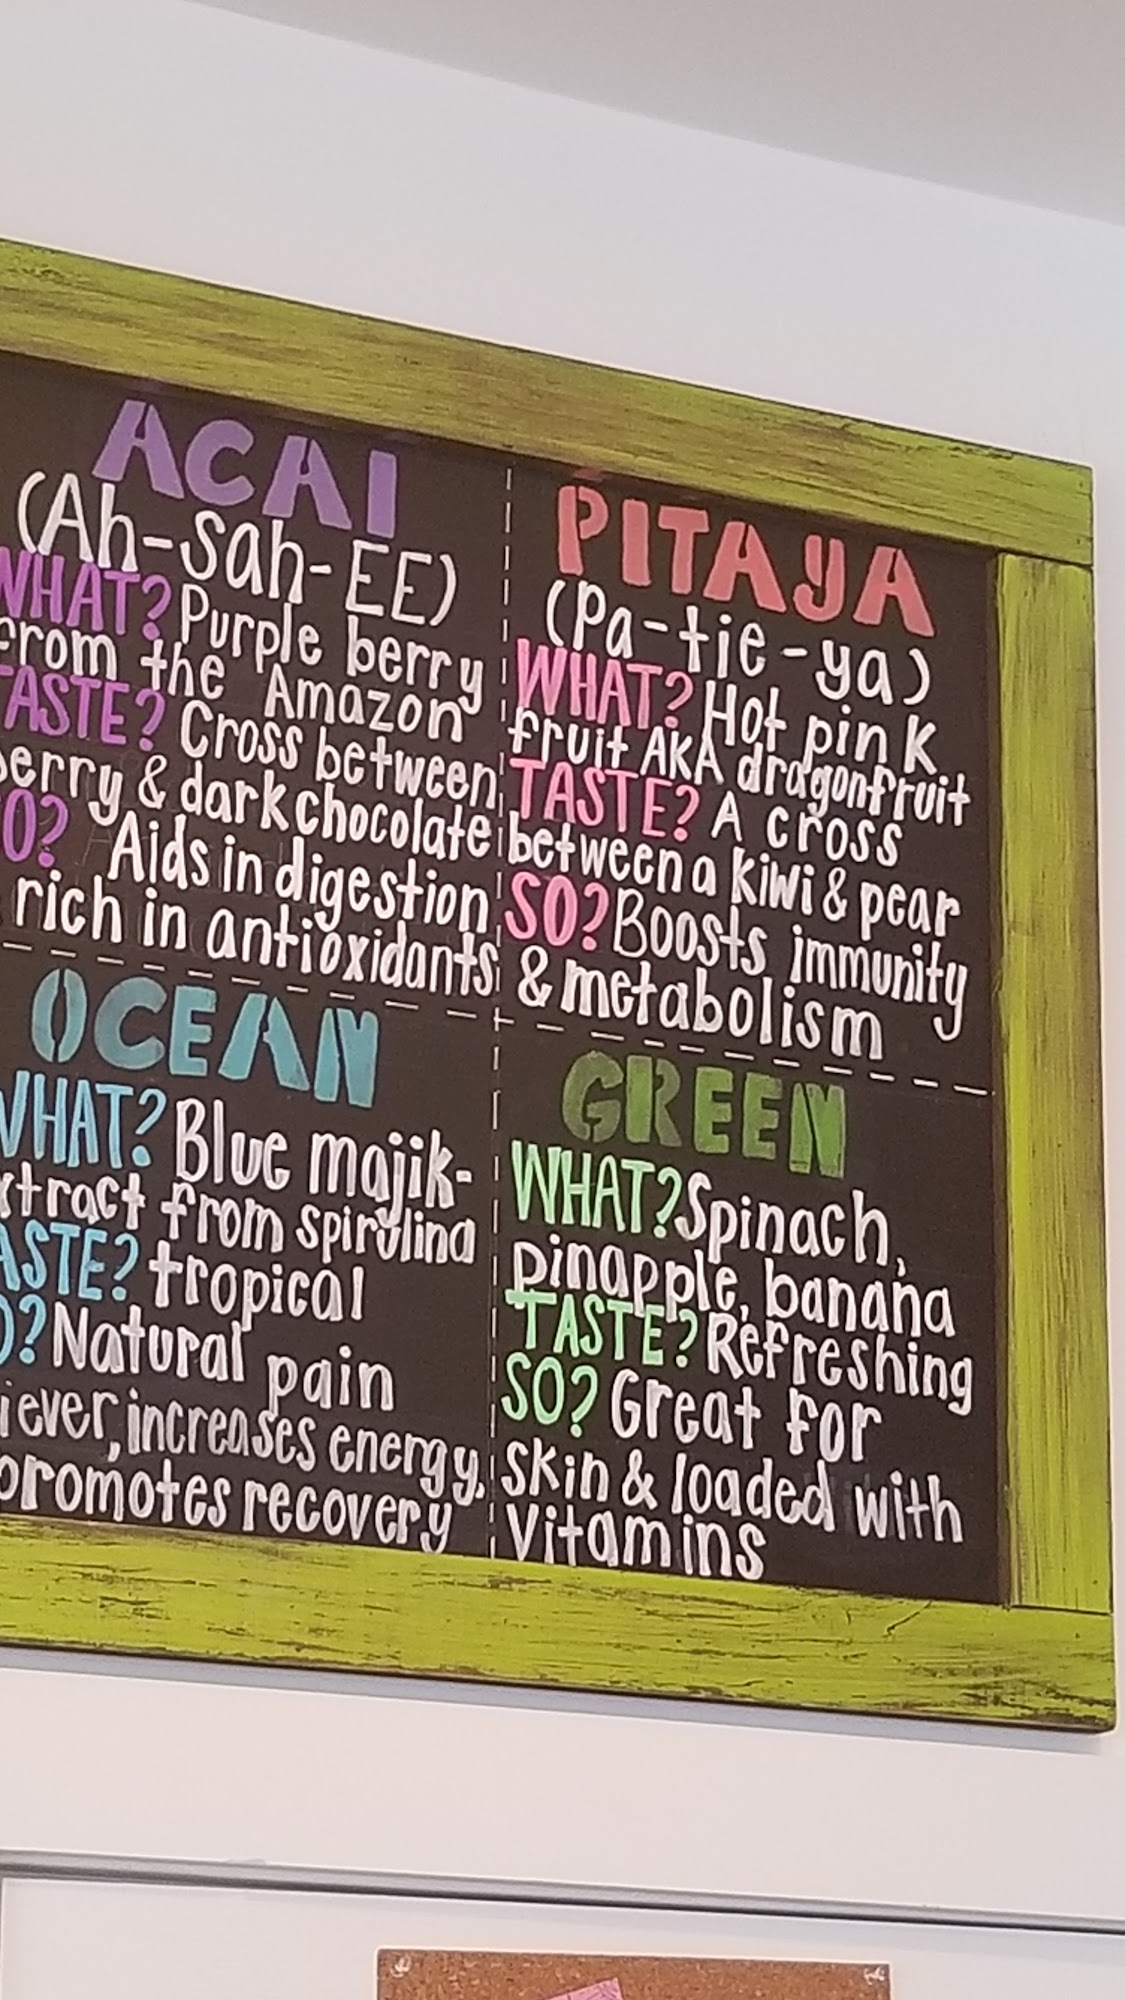 ACAI
(Ah-sah-EE)
WHAT? Purple berry
from the Amazon
TASTE? Cross between
berry & dark chocolate
SO? Aids in digestion
rich in antioxidants
PITAYA
(Pa-tie-ya)
WHAT? Hot pink
fruit AKA dragonfruit
TASTE? A cross
between a kiwi & pear
SO? Boosts immunity
& metabolism
OCEAN
WHAT? Blue majik-
xtract from spirulina
TASTE? tropical
SO? Natural pain
iever, increases energy,
promotes recovery
GREEN
WHAT? Spinach,
pinapple, banana
TASTE? Refreshing
SO? Great for
skin & loaded with
vitamins